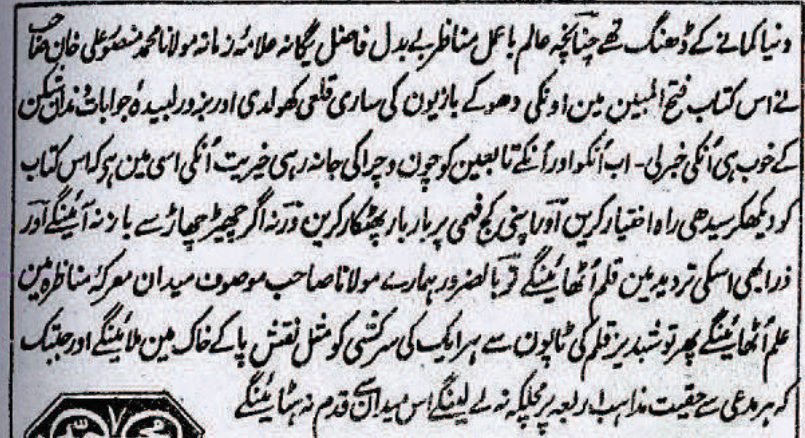 دنیا کمانے کے ڈھنگ تھے چنانچہ عالم باعمل مناظر بے بدل فاضل یگانہ علامۂ زمانہ مولانا محمد منصور علی خان صاحب
نے اس کتاب فتح المبین مین اونکی دھوکے بازیون کی ساری قلعی کھولدی اور بزور لبیدۂ جوابات دندان شکن
کے خوب ہی اُنکی خبر لی - اب اُنکو اور اُنکے تابعین کو چون و چرا کی جا نہ رہی خیریت اُنکی اسی مین ہو کہ اس کتاب
کو دیکھکر سیدھی راہ اختیار کرین اور اپنی کج فہمی پر بار بار پھٹکار کرین ورنہ اگر چھیڑ چھاڑ سے باز نہ آئینگے اور
ذرا بھی اسکی تردید مین قلم اُٹھائینگے تو بالضرور ہمارے مولانا صاحب موصوف میدان معرکۂ مناظرہ مین
علم اُٹھائینگے پھر تو شبدیز قلم کی ٹاپون سے ہر ایک کی سرکشی کو مثل نقش پا کے خاک مین ملائینگے اور جبتک
کہ ہر مدعی سے حقیت مذاہب اربعہ پر مچلکہ نہ لے لینگے اس میدان سے قدم نہ ہٹائینگے